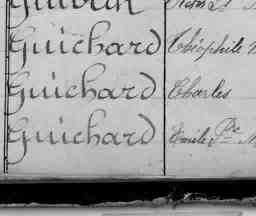 Guichard Théophile
Guichard Charles
Guichard Emile Pre